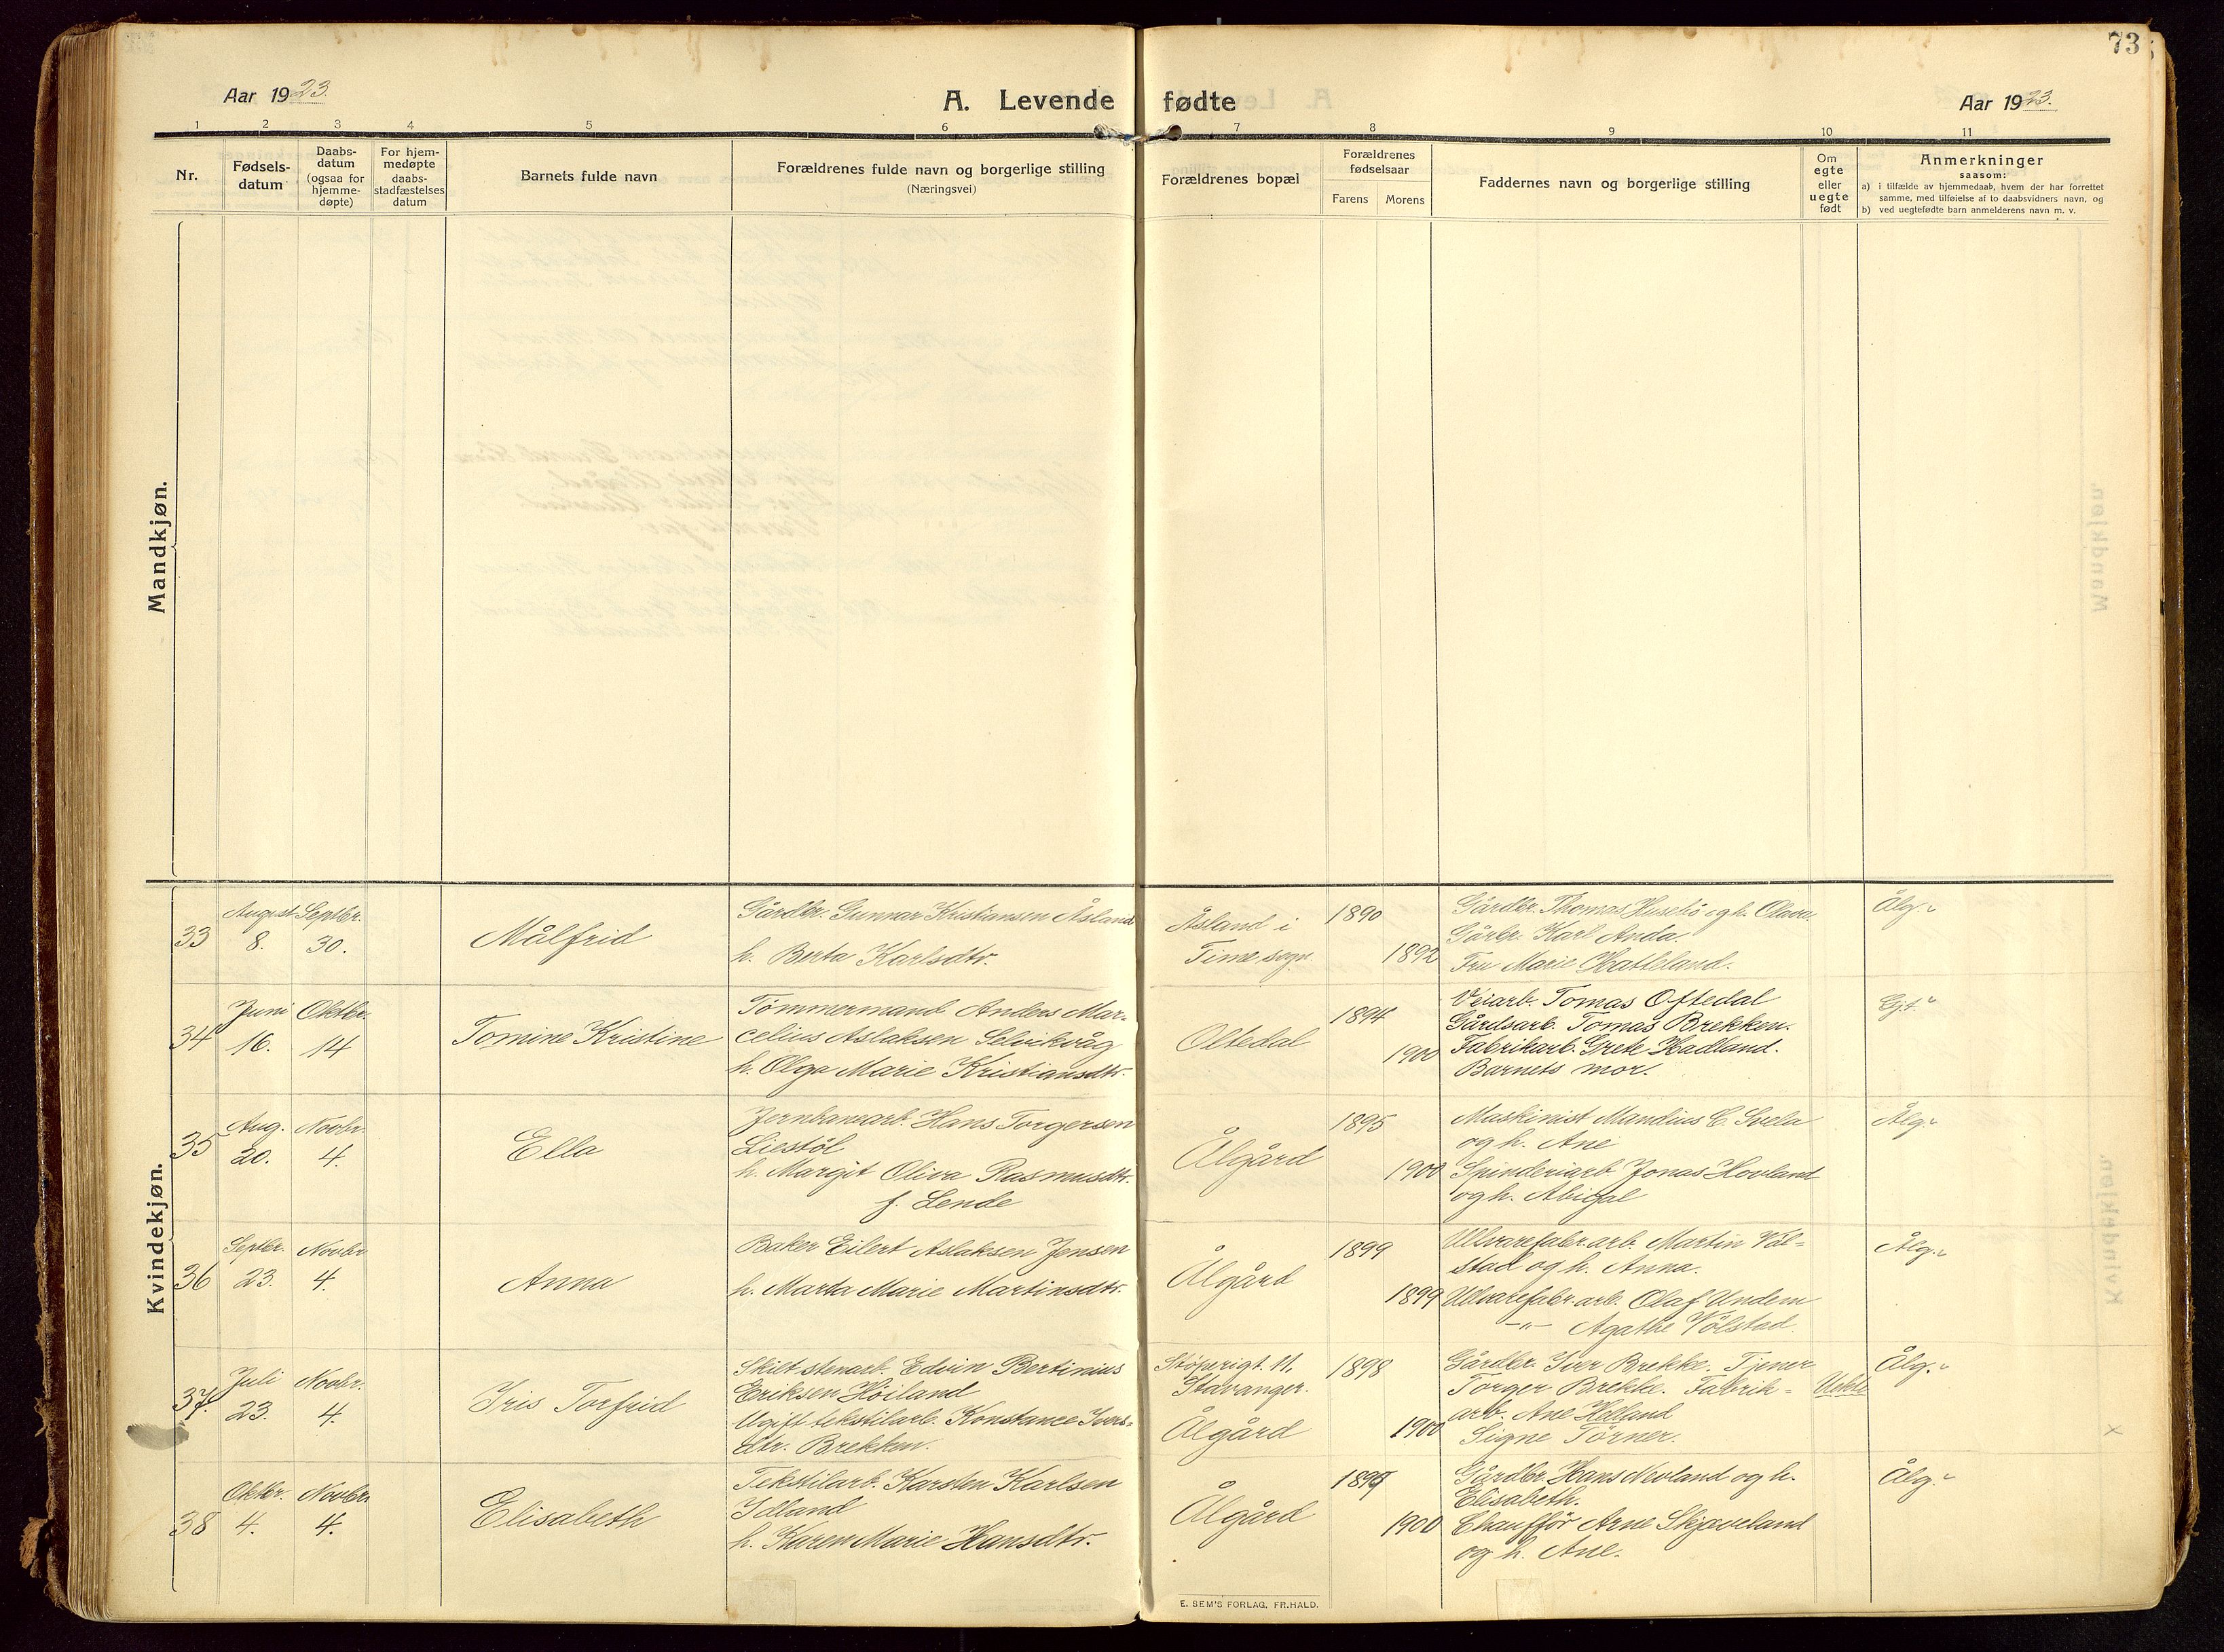 73
Aar 1923.
A. Levende fødte
Aar 1923.
1 2 3 4 5 6 7 8 9 10 11
Nr.
Fødsels-
datum
Daabs-
datum
(ogsaa for
hjemme-
døpte)
For hjem-
medøpte
daabs-
stadfæstelses
datum
Barnets fulde navn
Forældrenes fulde navn og borgerlige stilling
(Næringsvei)
Forældrenes bopæl
Forældrenes
fødselsaar
Farens Morens
Faddernes navn og borgerlige stilling
Om
egte
eller
uegte
født
Anmerkninger
saasom:
a) i tilfælde av hjemmedaab, hvem der har forrettet
samme, med tilføielse af to daabsvidners navn, og
b) ved uegtefødte barn anmelderens navn m. v.
Mandkjøn.
Kvindekjøn.
33
August
8.
Septbr.
30.
Målfrid
Gårdbr. Gunnar Kristiansen Åsland
h. Berta Karlsdtr.
Åsland i
Time sogn
1890
1892
Gårdbr. Thomas Husebö og h. Olave.
Gårbr. Karl Anda.
Fru Marie Hatleland.
Ålg.
34
Juni
16.
Oktbr.
14
Tomine Kristine
Tömmermand Anders Mar-
celius Aslaksen Selvikvåg
h. Olga Marie Kristiansdtr.
Oltedal
1894
1900
Veiarb. Tomas Oftedal
Gårdsarb. Tomas Brekken.
Fabrikarb. Grete Hadland.
Barnets mor.
Gj.t
35
Aug.
20.
Novbr.
4.
Ella
Jernbanearb. Hans Torgersen
Liestöl
h. Margit Oliva Rasmusdtr.
f. Lende
Ålgård
1895
1900
Maskinist Mandius C. Svela
og h. Ane
Spinderiarb Jonas Hovland
og h. Abigal
Ålg.
36
Septbr.
23.
Novbr
4.
Anna
Baker Eilert Aslaksen Jensen
h. Marta Marie Martinsdtr.
Ålgård
1899
1899
Ullvarefabr.arb. Martin Völ-
stad og h. Anna.
Ullvarefabr.arb. Olaf Undem
—"— Agathe Völstad.
Ålg.
37.
Juli
23.
Novbr.
4.
Iris Torfrid
Skilt stenarb. Edvin Bertinius
Eriksen Höiland
Ugift tekstilarb. Konstance Ivers-
dtr. Brekken.
Stöperigt. 11,
Stavanger.
Ålgård
1898
1900
Gårdbr. Iver Brekke. Tjener
Torger Brekke. Fabrik-
arb. Ane Holland
Signe Törner.
Uekte
Ålg.
38
Oktbr.
4.
Novbr.
4.
Elisabeth
Tekstilarb. Karsten Karlsen
Idland
h. Karen Marie Hansdtr.
Ålgård
1900
Gårdbr. Hans Nevland og h.
Elisabeth.
Chaufför Arne Skjæveland
og h. Ane.
Ålg.
E. SEM'S FORLAG, FR.HALD.